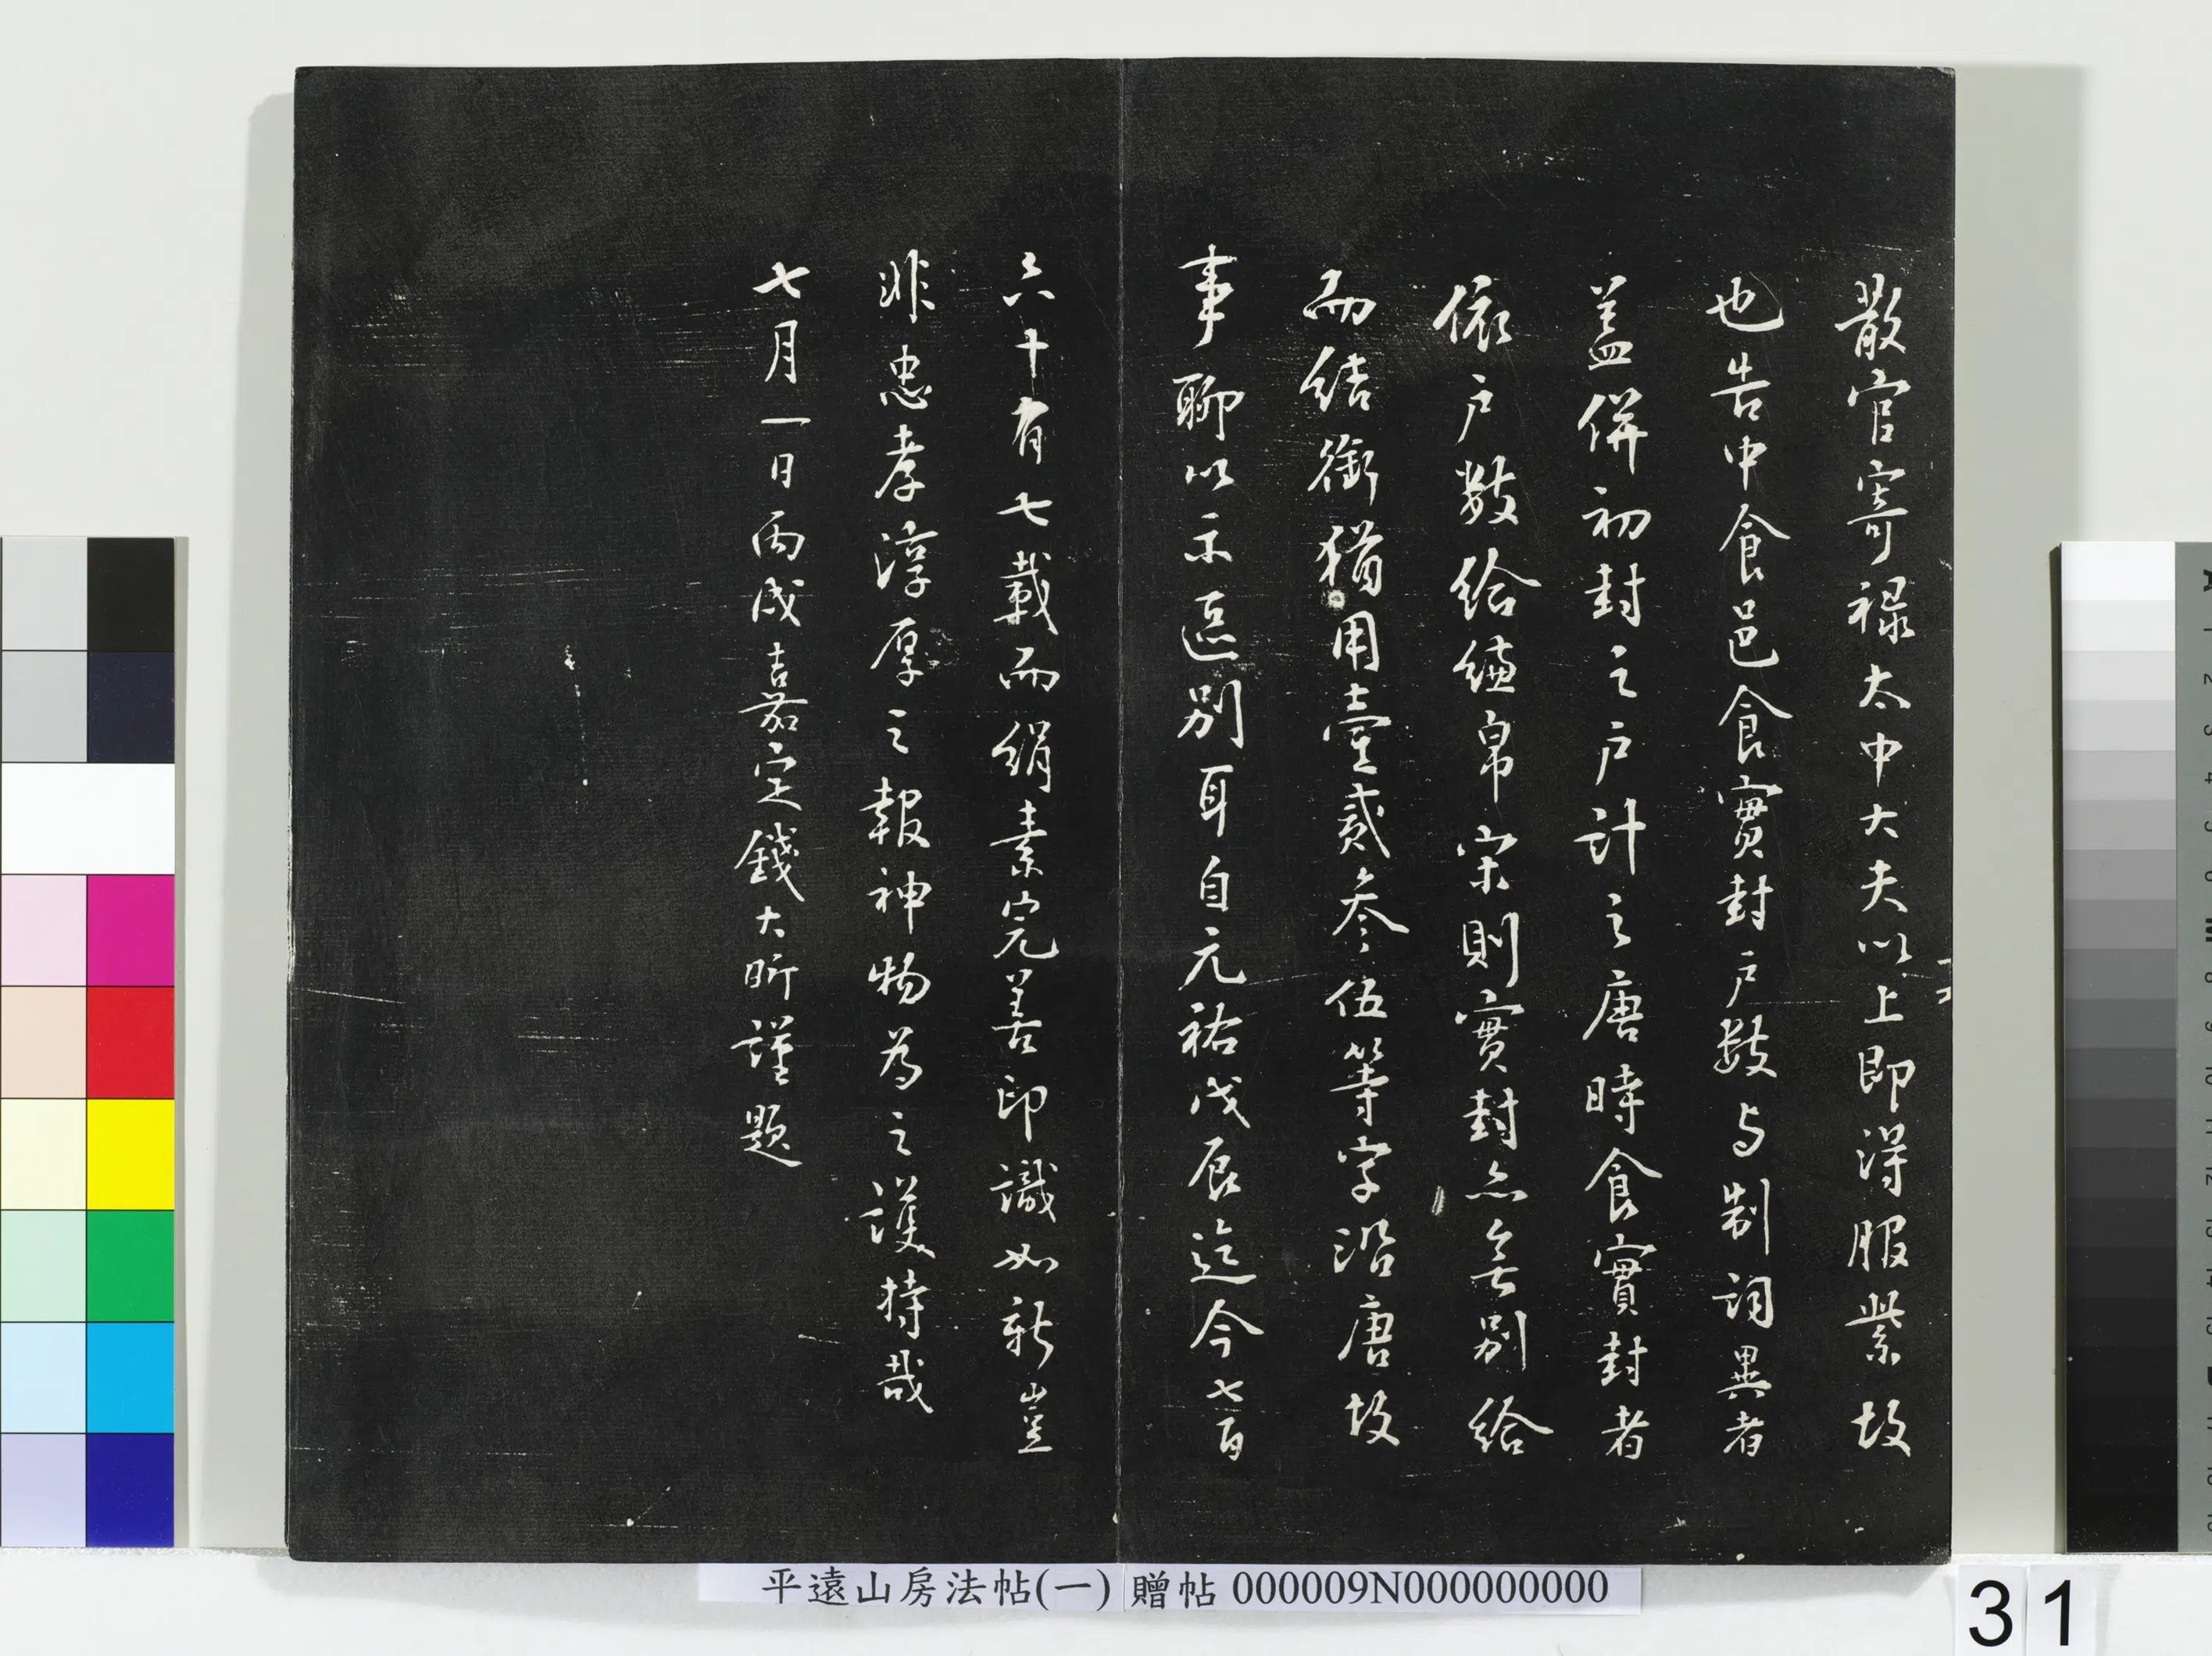 散官寄祿太中大夫以上即得服紫故
也告中食邑食實封戶數与制詞異者
盖併初封之戶計之唐時食實封者
依戶數給縑帛宋則實封亦無別給
而結銜猶用壹貳叁伍等字沿唐故
事聊以示區別耳自元祐戊辰迄今七百
六十有七載而絹素完善印識如新豈
非忠孝淳厚之報神物為之護持哉
七月一日丙戌嘉定錢大昕謹題
平遠山房法帖(一) 贈帖 000009N000000000
31